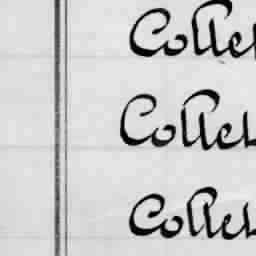 Collel
Collel
Collel